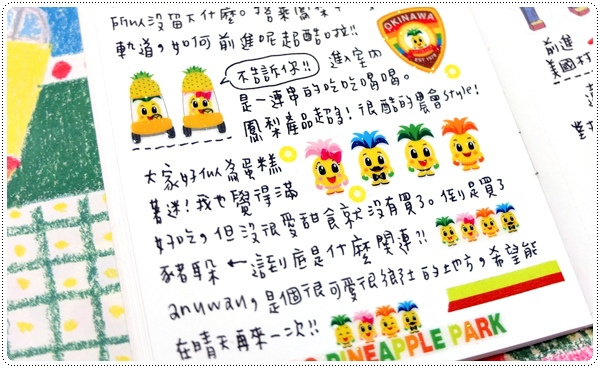 所以沒留下什麼。搭乘鳳梨
軌道，如何前進呢超酷啦!!
OKINAWA
不告訴你!! 進入室內
是一連串的吃吃喝喝。
鳳梨產品超多! 很酷的農會style!
大家好似為蛋糕
著迷! 我也覺得滿
好吃，但沒很愛甜食就沒有買了。倒是買了
豬躲 ← 這到底是什麼關連!!
anyway，是個很可愛很鄉社的地方，希望能
在晴天再來一次!!
PINEAPPLE PARK
前進
美國村